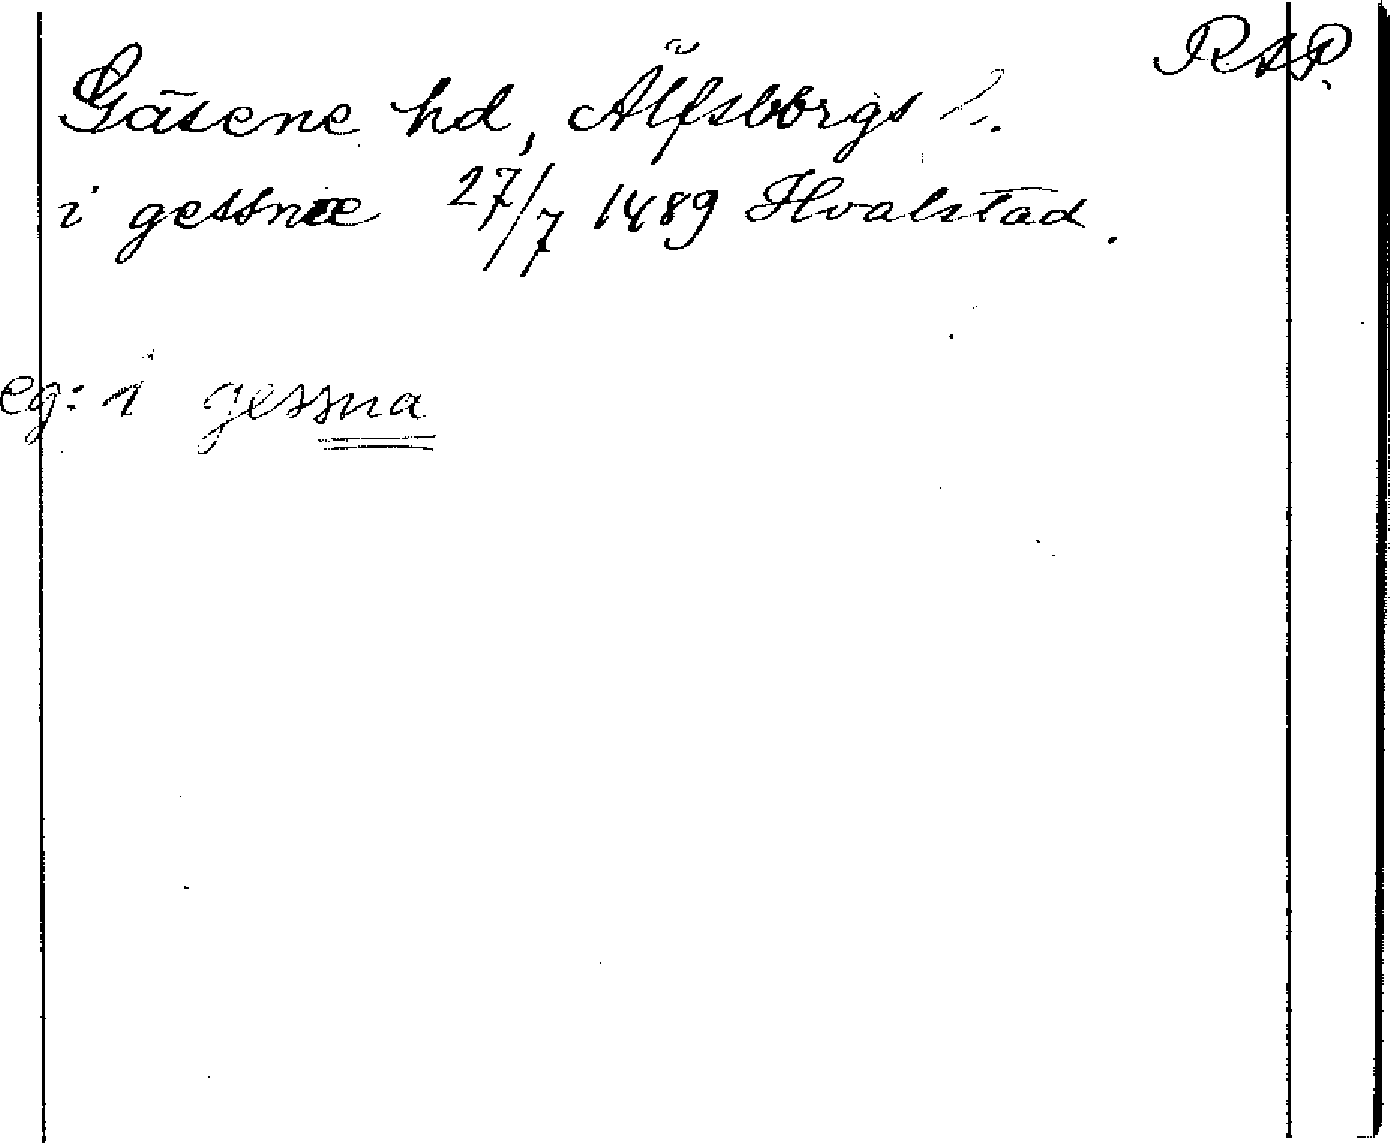 RAP.
Gäsene hd, Älfsborgs l.
i gessnæ 27/7 1489 Hvalstad.
eg: i gessna